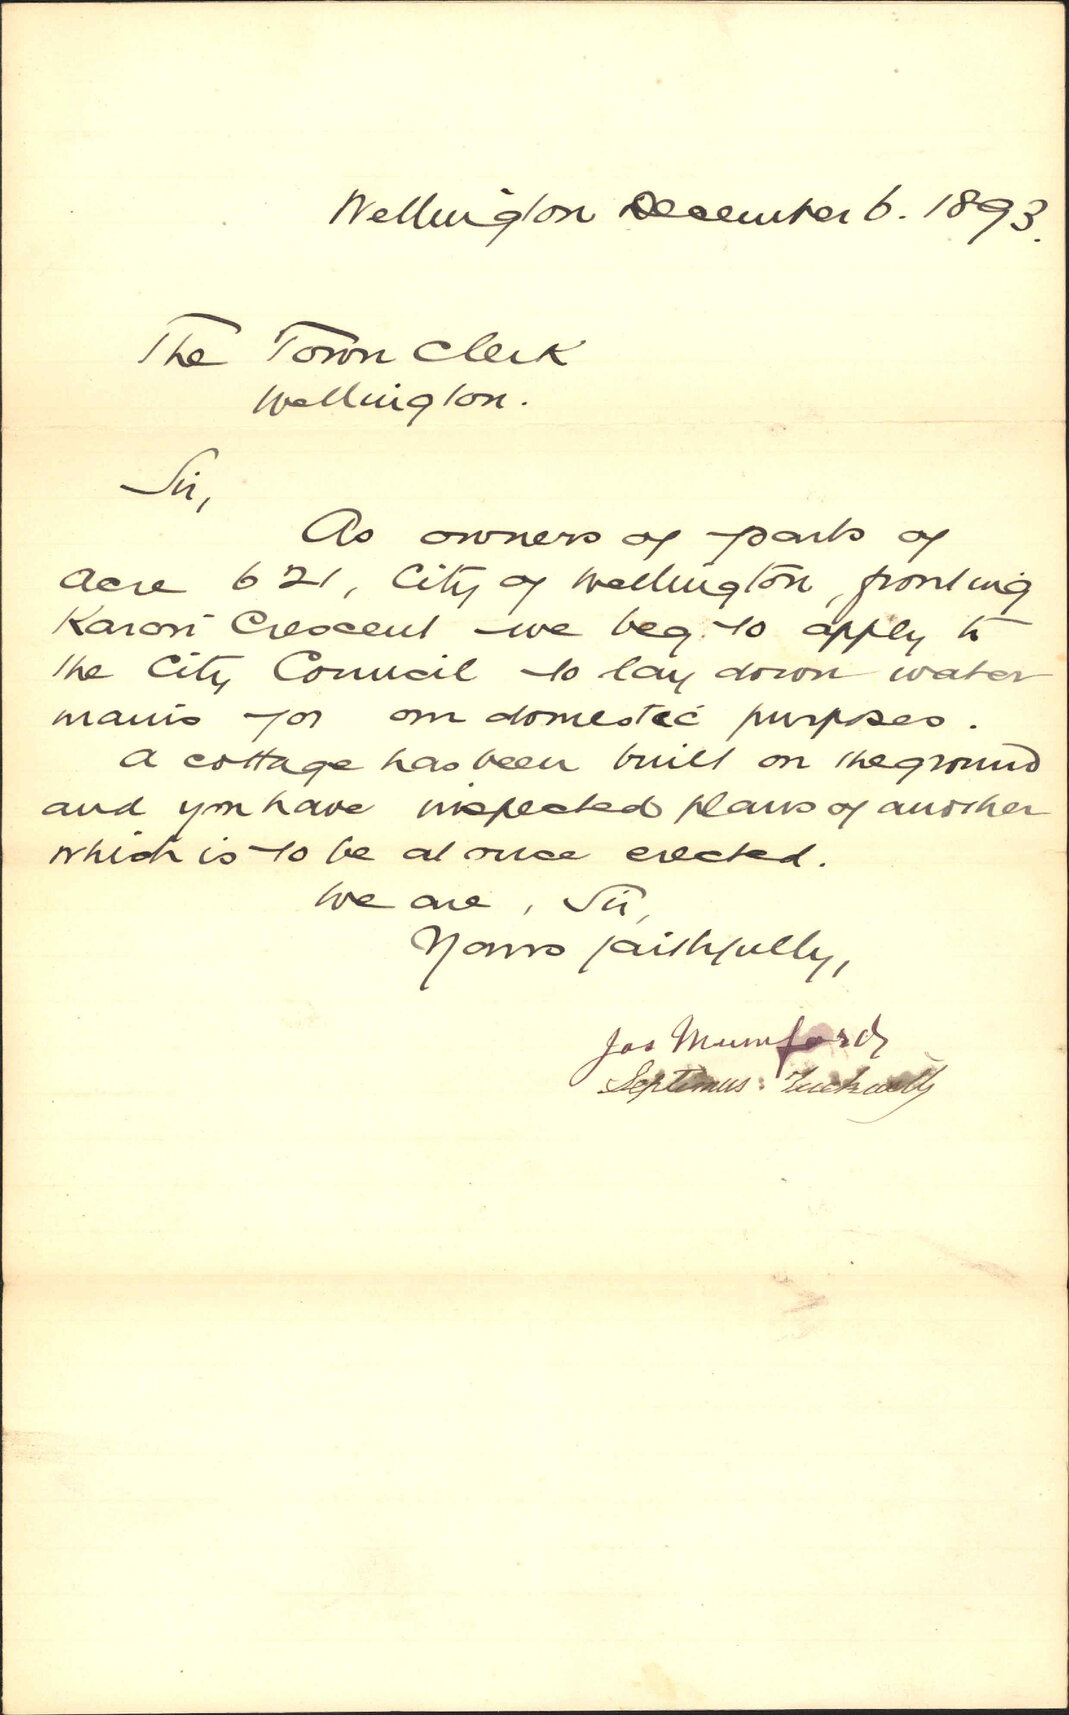 Wellington December 6. 1893.
The Town Clerk
Wellington.
Sir,
As owners of parts of
Acre 621, City of Wellington, fronting
Karori Crescent we beg to apply to
the City Council to lay down water
mains for our domestic purposes.
A cottage has been built on the ground
and you have inspected plans of another
which is to be at once erected.
We are, Sir,
Yours faithfully,
Jas Mumford
Septimus